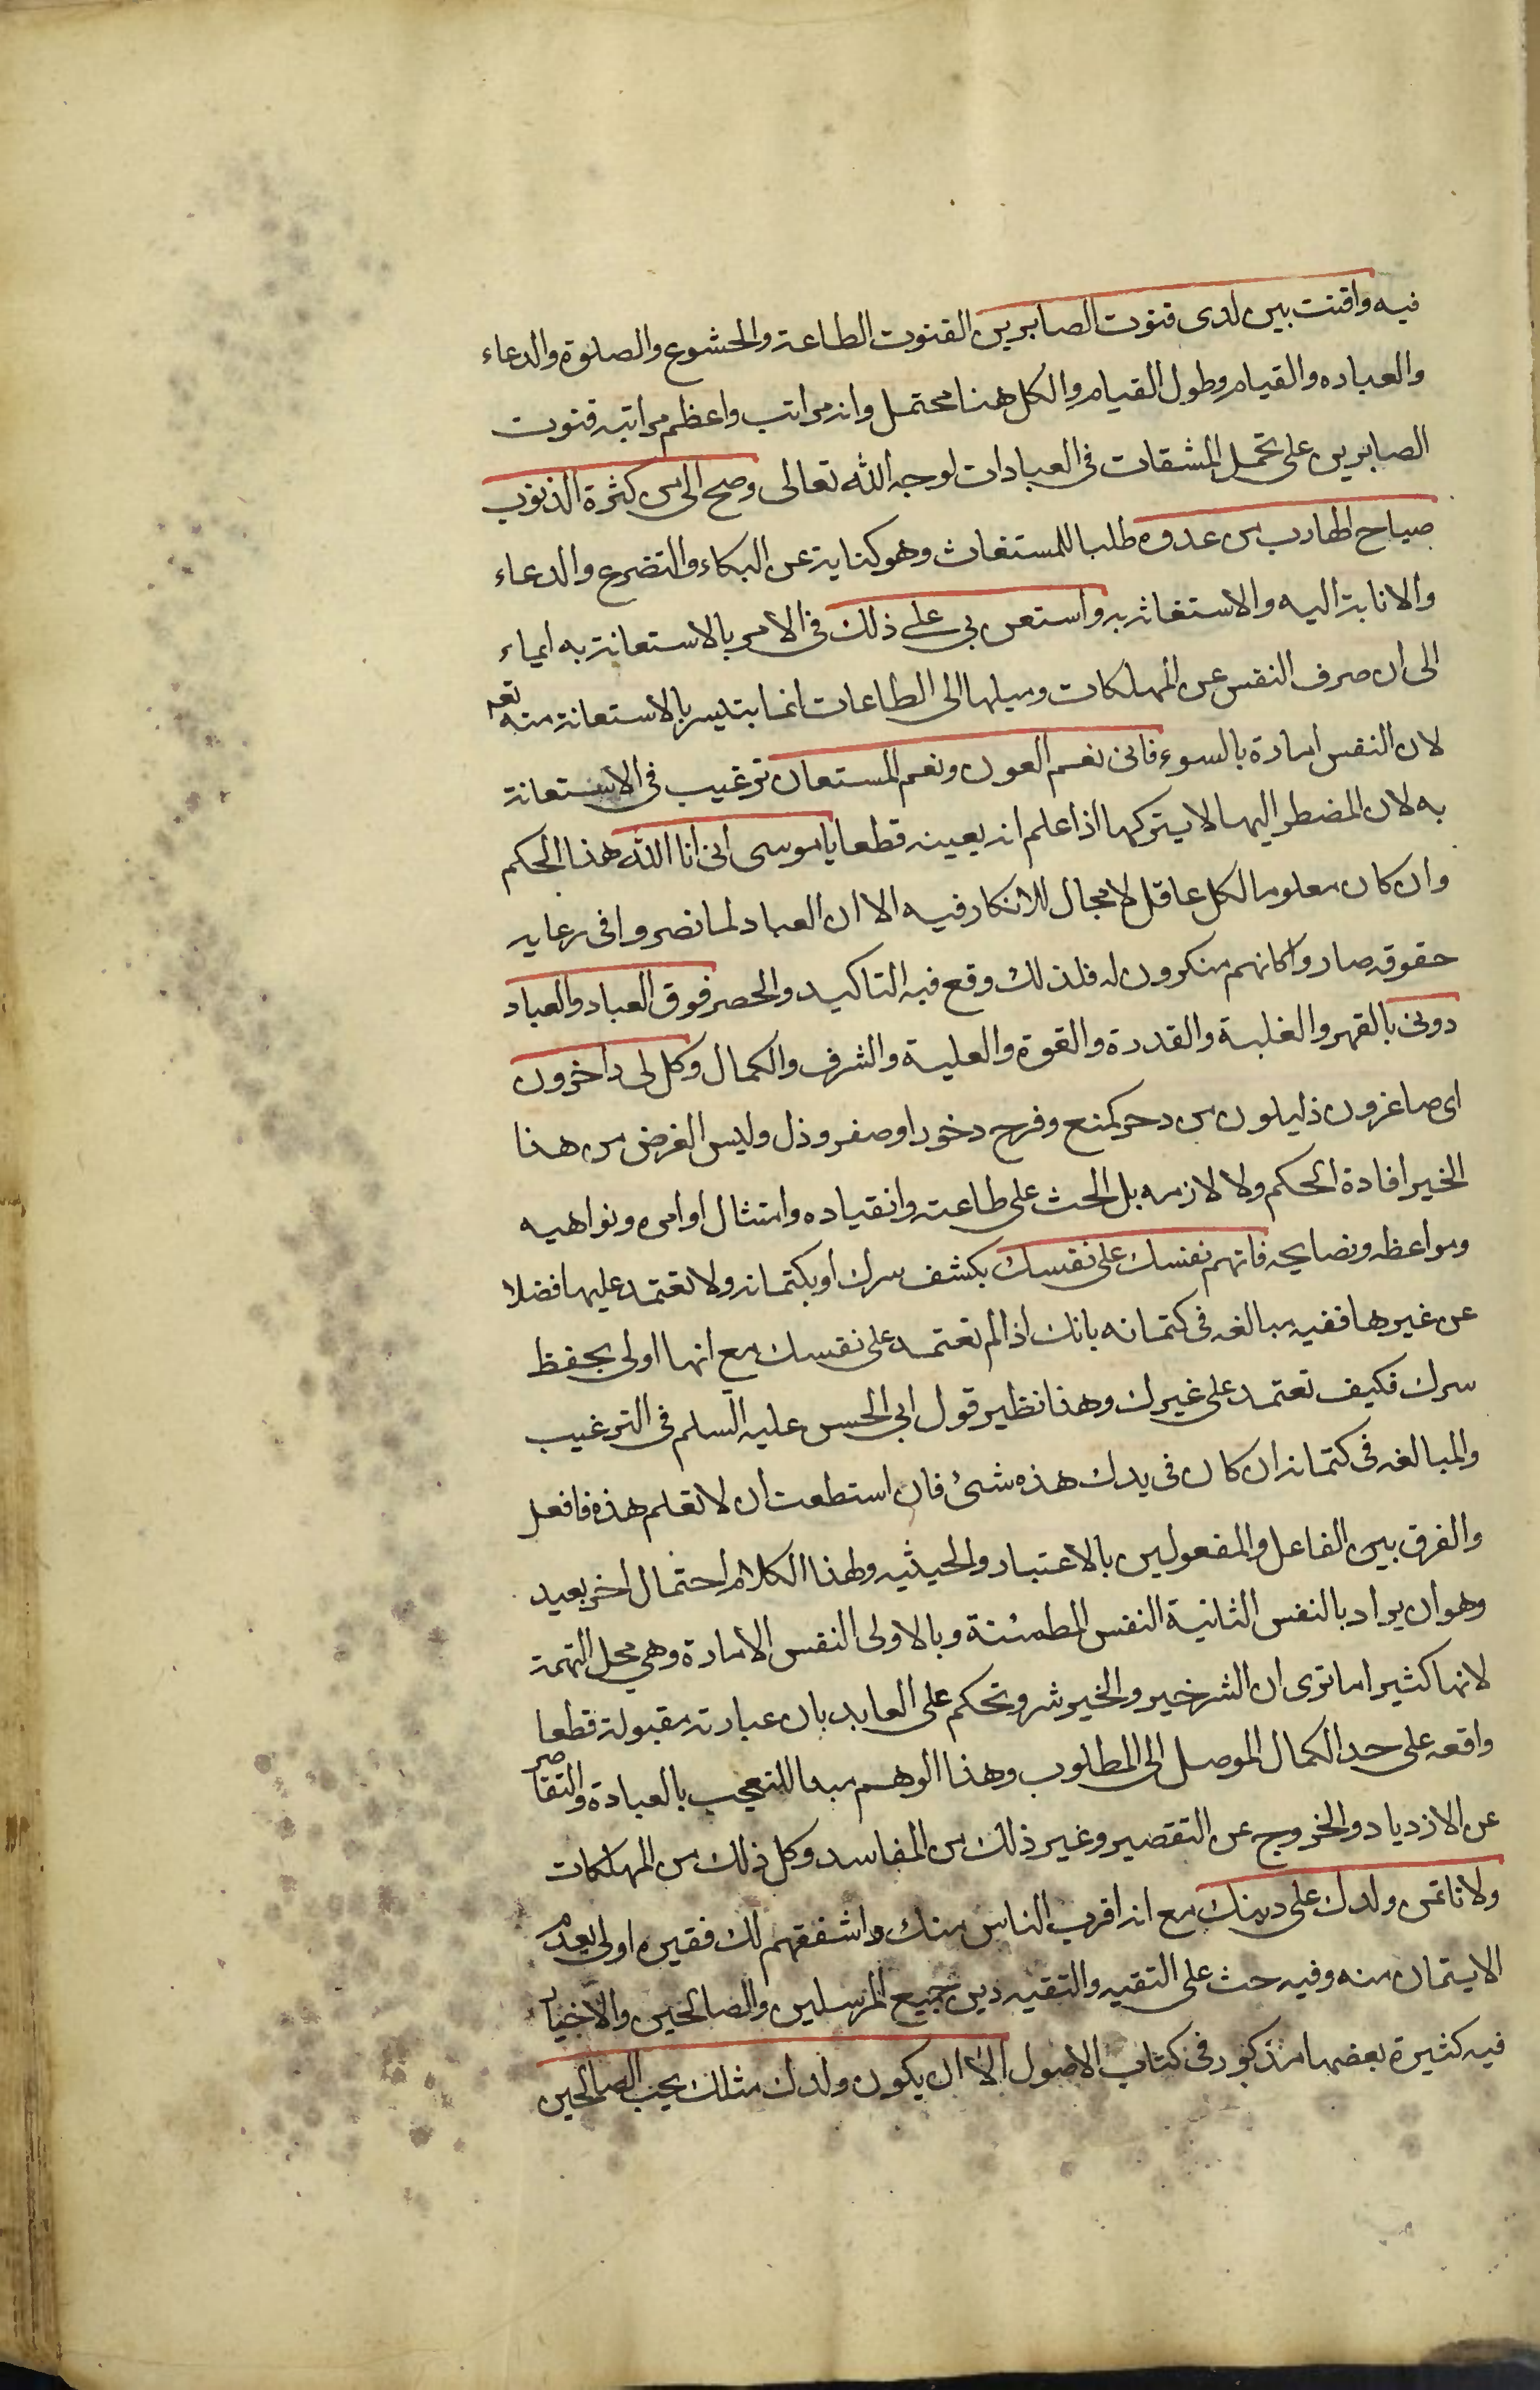 فيه واقنت بين لدى قنوت الصابرين القنوت الطاعة والخشوع والصلوة والدعاء
والعباده والقيام وطول القيام والكل هنا محتمل وانه مراتب واعظم مراتبه قنوت
الصابرين على تحمل المشقات فى العبادات لوجه الله تعالى وصح الى من كثرة الذنوب
صياح الهارب من عدوه طلبا للمستغاث وهو كناية عن البكاء والتضرع والدعاء
والانابة اليه والاستغاثه به واستعن بى على ذلك فى الامر بالاستعانة به ايماء
الى ان صرف النفس عن المهلكات وميلها الى الطاعات انما يتيسر بالاستعانة منه تعه
لان النفس امارة بالسوء فانى نعم العون ونعم المستعان ترغيب فى الاستعانة
به لان المضطر اليها لا يتركها اذا علم انه يعينه قطعا يا موسى انى انا الله هذا الحكم
وان كان معلوما لكل عاقل لا مجال للانكار فيه الا ان العباد لما نصروا فى رعايه
حقوقه صاروا كانهم منكرون له فلذلك وقع فيه التاكيد والحصر فوق العباد والعباد
دونى بالقهر والغلبة والقدرة والقوة والعلية والشرف والكمال وكل لى داخرون
اى صاغرون ذليلون من دخر كمنع وفرح دخورا وصغر وذل وليس الغرض من هذا
الخبر افادة الحكم ولا لازمه بل الحث على طاعته وانقياده وامتثال اوامره ونواهيه
ومواعظه ونصايحه فاتهم نفسك على نفسك بكشف سرك او بكتمانه ولا تعتمد عليها فضلا
عن غيرها ففيه مبالغه فى كتمانه بانك اذا لم تعتمد على نفسك مع انها اولى بحفظ
سرك فكيف تعتمد على غيرك وهذا نظير قول ابى الحسن عليه السلم فى الترغيب
والمبالغه فى كتمانه ان كان فى يدك هذه شئ فان استطعت ان لا تعلم هذه فافعل
والفرق بين الفاعل والمفعولين بالاعتبار والحيثيه ولهذا الكلام احتمال اخر بعيد
وهو ان يراد بالنفس الثانية النفس المطمئنة وبالاولى النفس الامارة وهي محل التهمة
لانها كثيرا ما ترى ان الشر خير والخير شر وتحكم على العابد بان عبادته مقبولة قطعا
واقعه على حد الكمال الموصل الى المطلوب وهذا الوهم مبدا للتعجب بالعبادة والتقاصر
عن الازدياد والخروج عن التقصير وغير ذلك من المفاسد وكل ذلك من المهلكات
ولا تاتمن ولدك على دينك مع انه اقرب الناس منك واشفقهم لك فغيره اولى بعدم
الايتمان منه وفيه حث على التقيه والتقيه دين جميع المرسلين والصالحين والاخبار
فيه كثيرة بعضها مذكور فى كتاب الاصول الا ان يكون ولدك مثلك يحب الصالحين